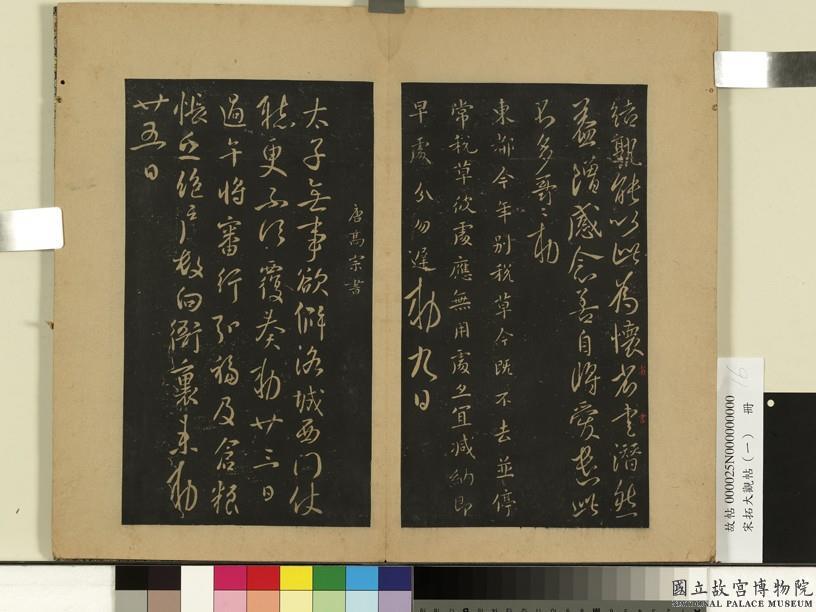 結氣能以此為懷省書潛然
益增感念善自將愛遣此
不多哥哥勅
東都今年別稅草今既不去並停
常稅草彼處應無用處亦宜減納即
早處分勿遲勅九日
唐高宗書
太子無事欲僻洛城西門仗
聽更不須覆奏勅廿三日
過午將審行弘福及含粮
恨立絕戶故向衙裏來勅
廿五日
16
故帖 000025N000000000
宋拓大觀帖(一) 冊
國立故宮博物院
NATIONAL PALACE MUSEUM